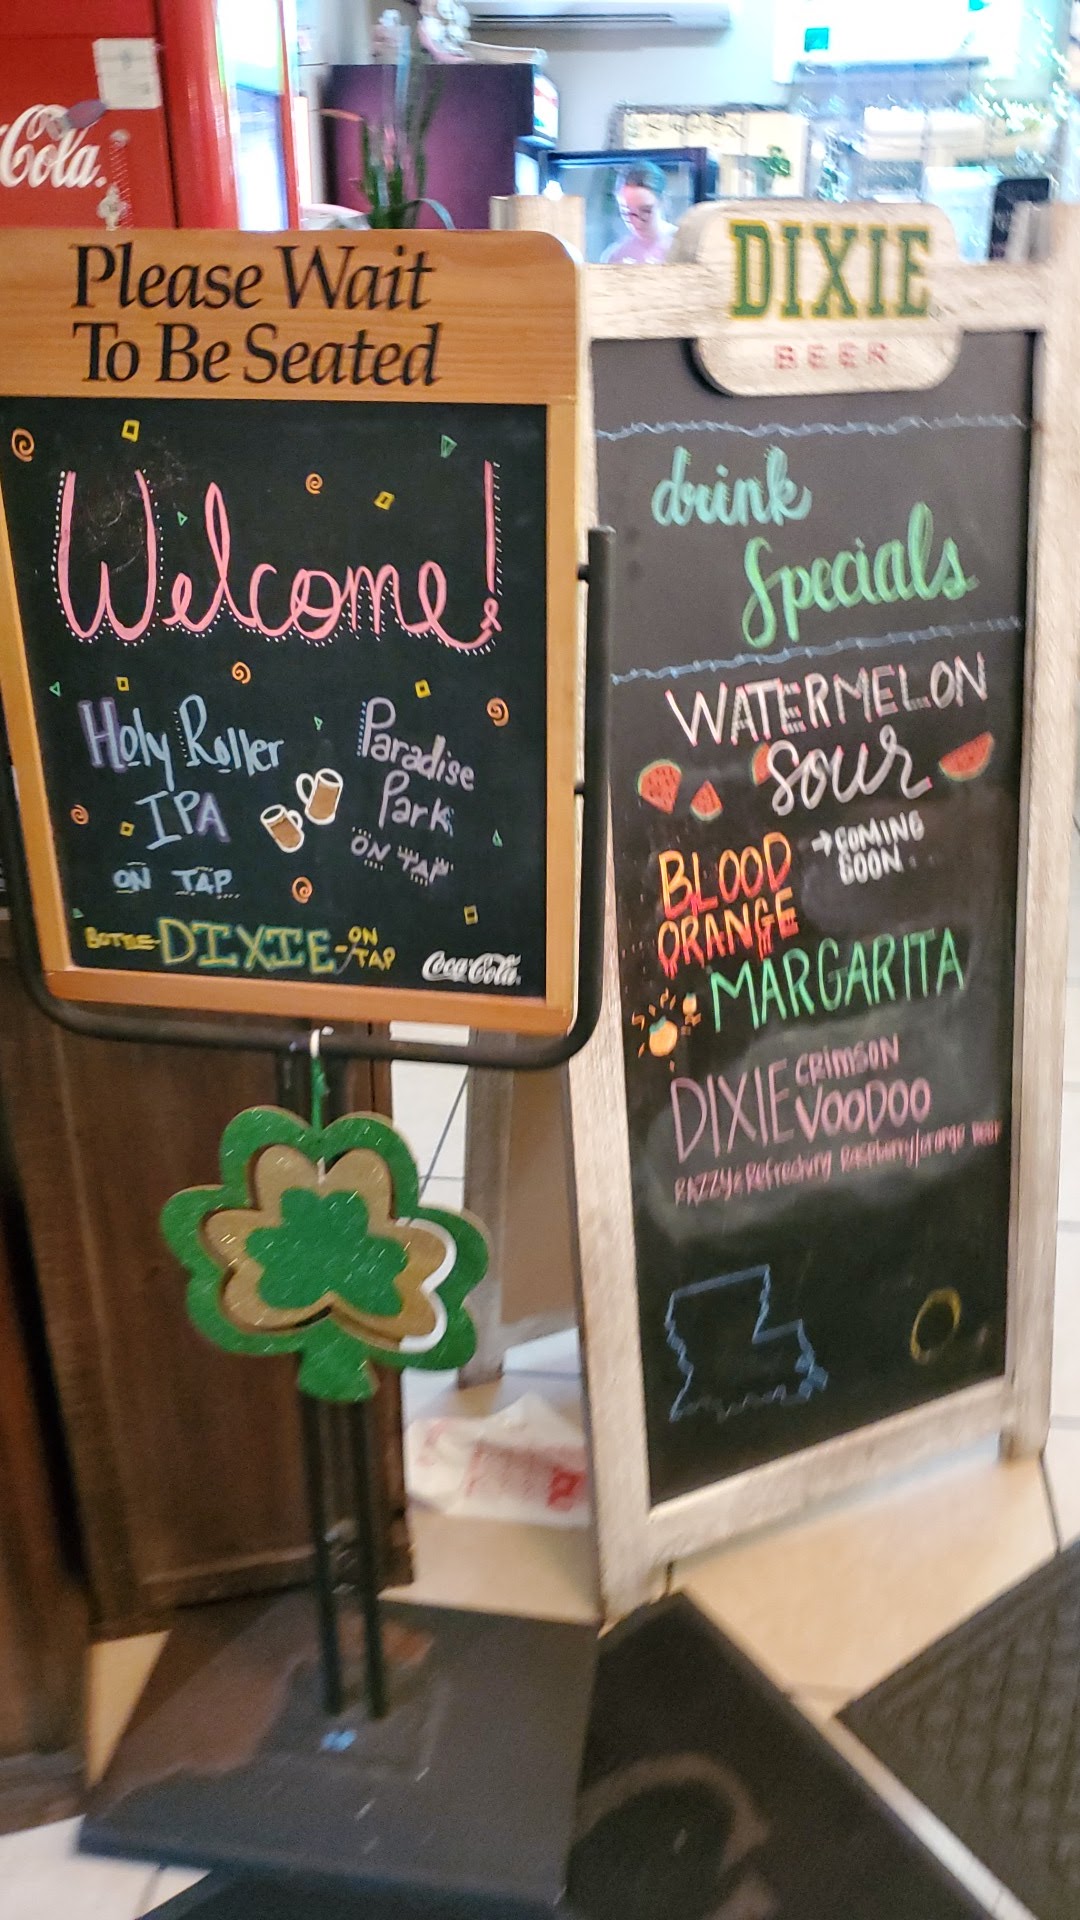 Cola.
Please Wait
To Be Seated
Welcome!
Holy Roller
IPA
ON TAP
Paradise
Park
ON TAP
BOTTLE-DIXIE-ON
TAP
Coca-Cola
DIXIE
BEER
drink
Specials
WATERMELON
Sour
BLOOD
ORANGE
→COMING
SOON
MARGARITA
DIXIE CRIMSON
VOODOO
RAZZY & Refreshing Raspberry/orange Beer